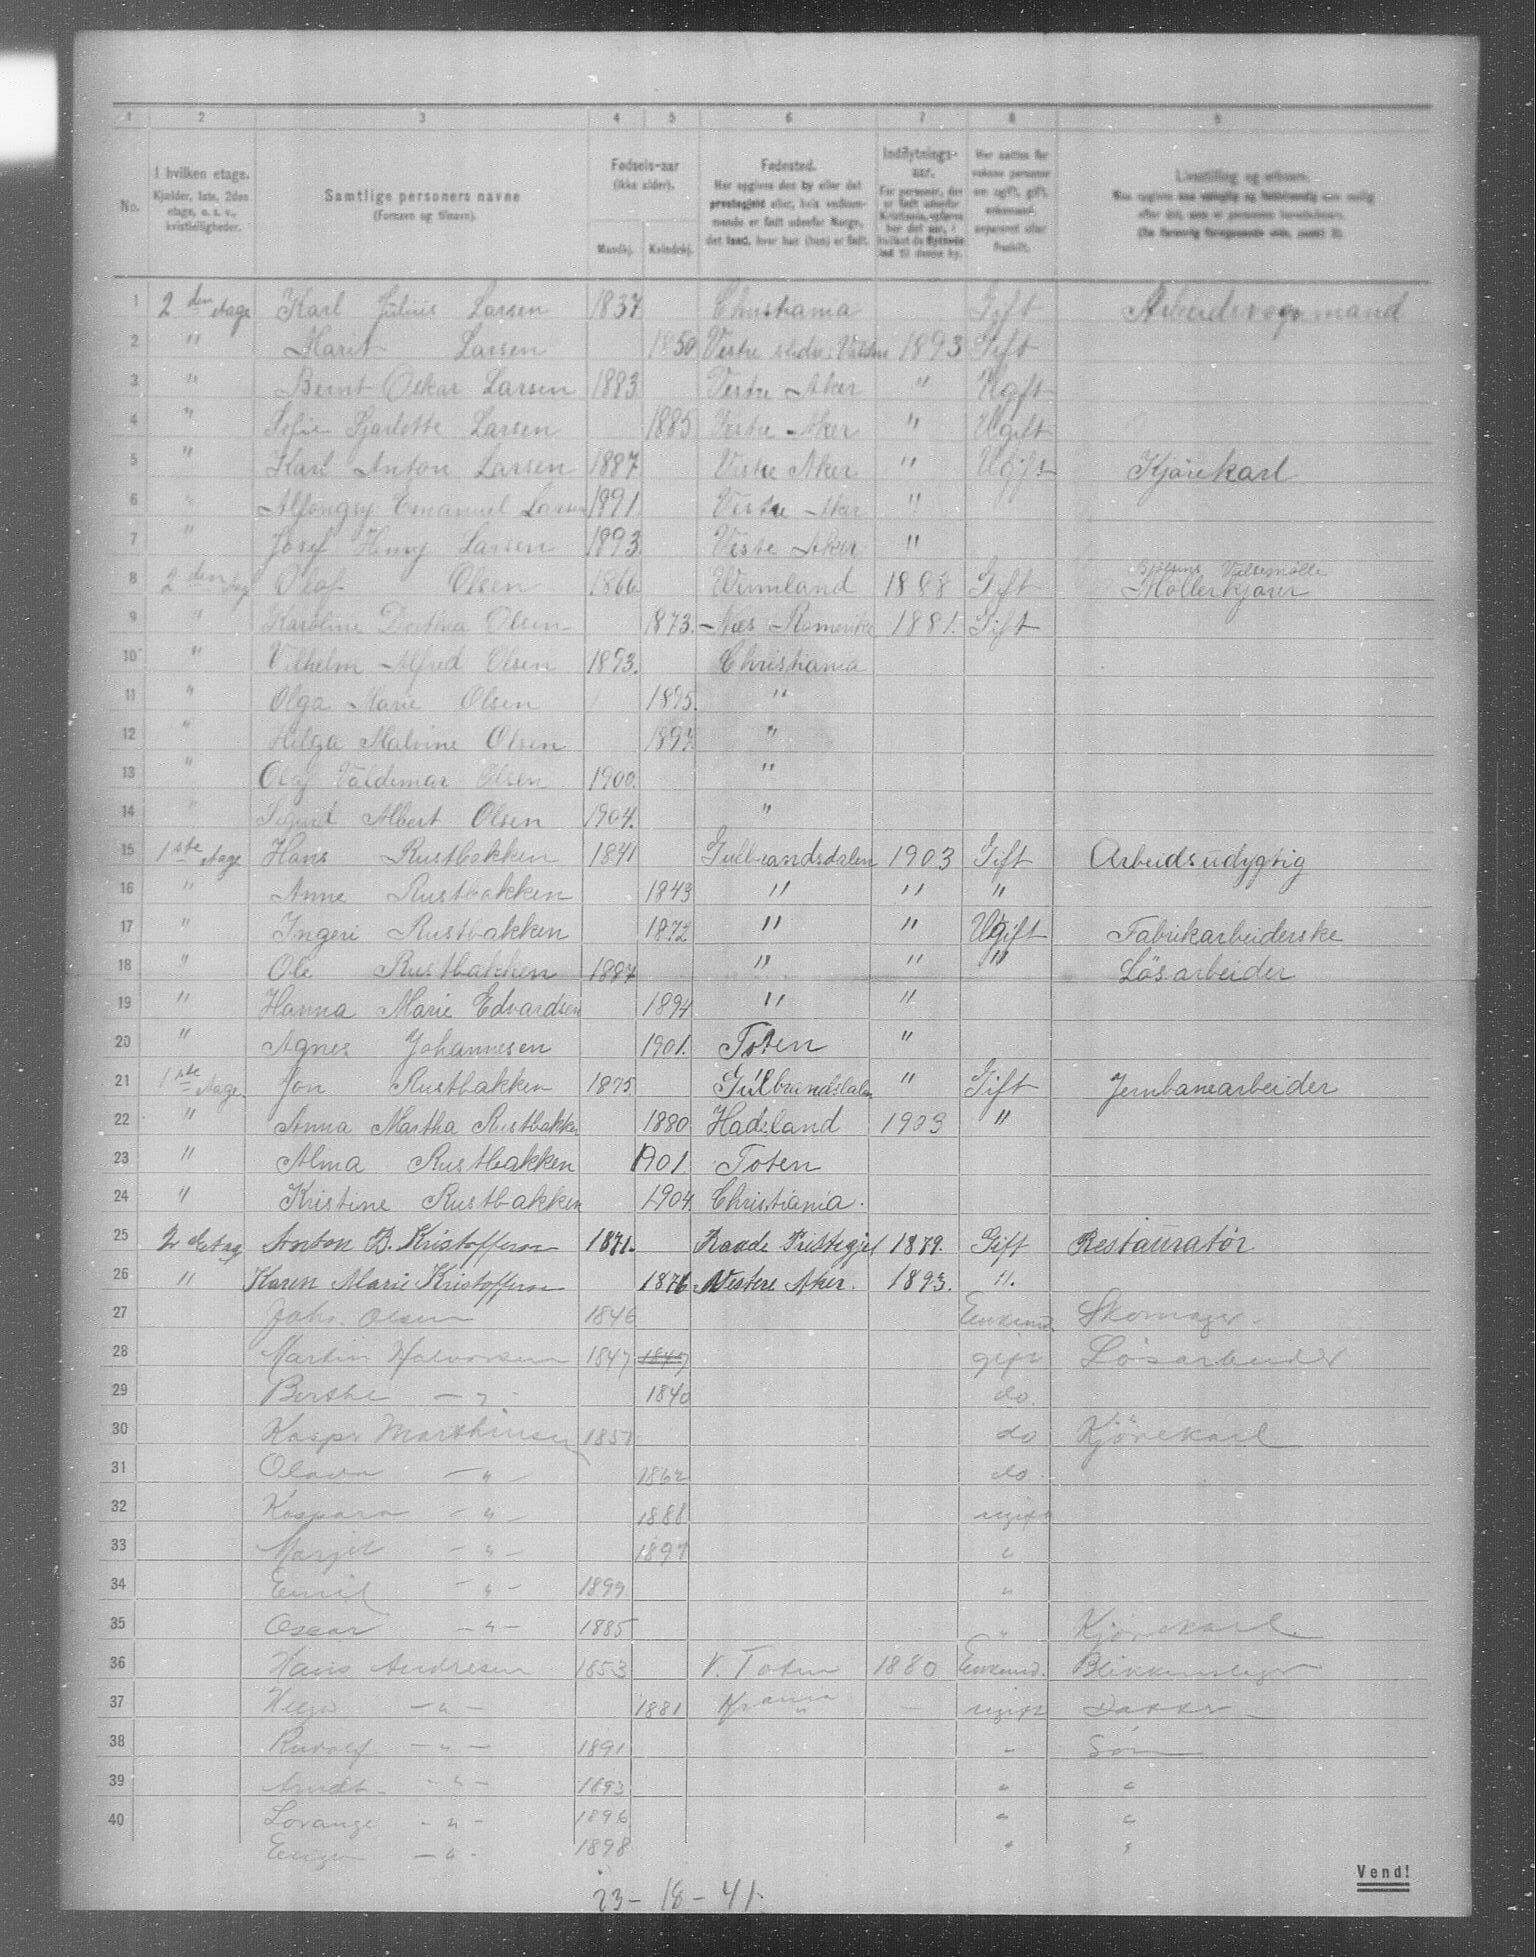 1 2 3 4 5 6 7 8 9
No.
I hvilken etage.
Kjælder, 1ste, 2den
etage, o. s. v.,
kvistleiligheder.
Samtlige personers navne
(Fornavn og tilnavn).
Fødsels-aar
(ikke alder).
Mandkj. Kvindekj.
Fødested.
Her opgives den by eller det
prestegjeld eller, hvis vedkom-
mende er født udenfor Norge,
det land, hvor han (hun) er født.
Indflytnings-
aar.
For personer, der
er født udenfor
Kristiania, opføres
her det aar, i
hvilket de flyttede
ind til denne by.
Her sættes for
voksne personer
om ugift, gift,
enkemand,
separeret eller
fraskilt.
Livsstilling og erhverv.
1 2 den etage Karl Julius Larsen 1837 Christiania Gift Arbeidsvognmand
2 " Marit Larsen 1850 Vestre Slidre Valdres 1893 Gift
3 " Bernt Oskar Larsen 1883 Vestre Aker " Ugift
4 " Sofie Sjarlotte Larsen 1885 Vestre Aker " Ugift
5 " Karl Anton Larsen 1887 Vestre Aker " Ugift Kjörekarl
6 " Emanuel Larsen 1891 Vestre Aker "
7 " Josef Henry Larsen 1893 Veste Aker "
8 2 den etag Olaf Olsen 1866 Wermland 1888 Gift Bjølsens Valsemölle Möllerkjører
9 " Karoline Dorthea Olsen 1873. Næs Romerike 1881. Gift
10 " Vilhelm Alfred Olsen 1893. Christiania
11 " Olga Marie Olsen 1895. "
12 " Helga Malvine Olsen 1897 "
13 " Olaf Valdemar Olsen 1900. "
14 " Sigurd Albert Olsen 1904. "
15 1 ste etage Hans Rustbakken 1841 Gulbrandsdalen 1903 Gift Arbeidsudygtig
16 " Anne Rustbakken 1843 " " "
17 " Ingeri Rustbakken 1872 " " Ugift Fabrikarbeiderske
18 " Ole Rustbakken 1887 " " " Lösarbeider
19 " Hanna Marie Edvardsen 1894 " "
20 " Agnes Johannesen 1901. Toten "
21 1 ste etage Jon Rustbakken 1875 Gulbrandsdalen " Gift Jernbanearbeider
22 " Anna Martha Rustbakken 1880 Hadeland 1903 "
23 " Alma Rustbakken 1901 Toten
24 " Kristine Rustbakken 1904 Christiania.
25 2 Etage Anton B. Kristoffersen 1871. Raade Pristegjel 1879. Gift Restauratör
26 " Karen Marie Kristoffersen 1876 Vestere Aker. 1893. ".
27 Johs. Olsen 1846 Enkem. Skomager
28 Martin Halvorsen 1847 1847 gift Lösarbeider
29 Berthe — " — 1840 do.
30 Kaspr Marthinsen 1857 do Kjörekarl
31 Olava — " — 1862 do.
32 Kaspara — " — 1888 ugift
33 Margit — " — 1897 "
34 Emil — " — 1899 "
35 Oscar — " — 1885 " Kjörekarl
36 Hans Andresen 1853 V. Toten 1880 Enkemd. Blikkenslager
37 Helga — " — 1881 Kra̅nia — ugift Datter
38 Rudolf — " — 1891 " Sön
39 Arndt — " — 1893 " "
40 Lorange — " — 1896 " "
— " — 1898 " "
Vend!
23 - 18 - 41